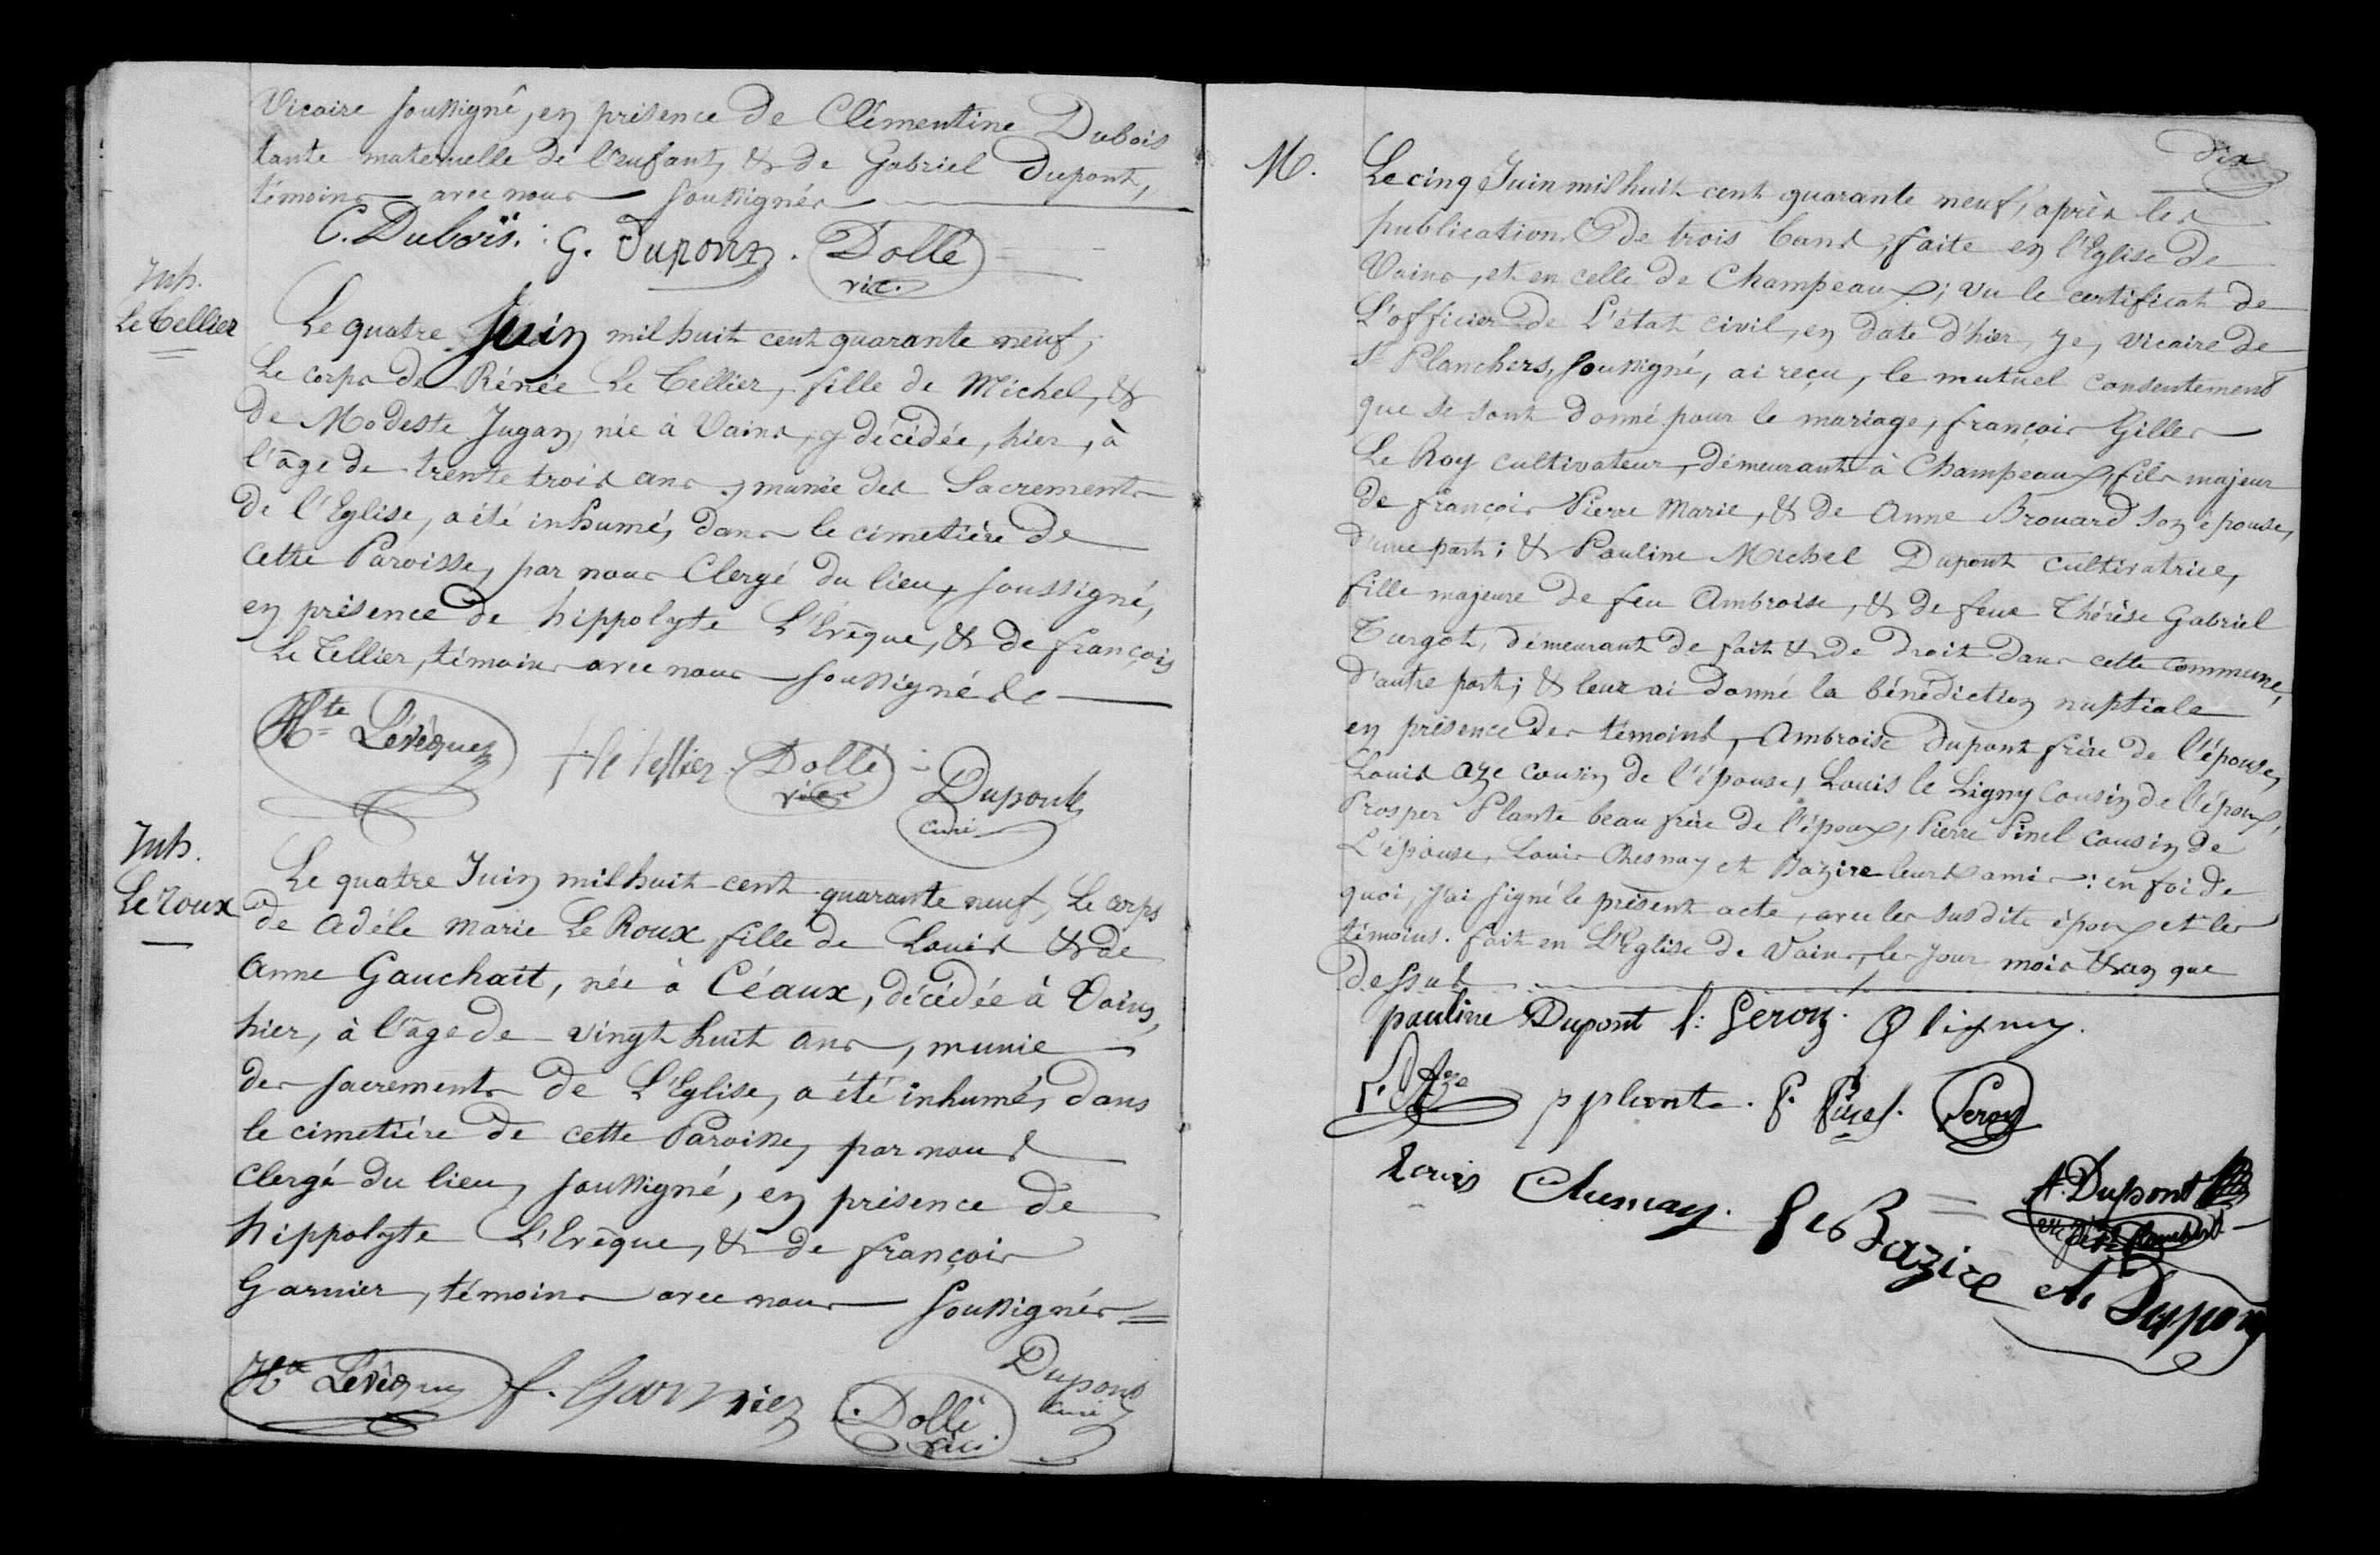 Vicaire soussigné, en présence de Clémentine Dubois
tante maternelle de l'enfant, & de Gabriel Dupont,
témoins avec nous soussignés
C. Dubois. G. Dupont. Dollé
vic.
Inh.
Le Tellier
Le quatre Juin mil huit cent quarante neuf,
Le corps de Rénée Le Tellier, fille de Michel, &
de Modeste Jugan, née à Vains, y décédée, hier, à
l'âge de trente trois ans, munie des Sacrements
de l'Eglise, a été inhumé, dans le cimetière de
cette Paroisse, par nous Clergé du lieu, soussigné,
en présence de hippolyte L'Evêque, & de françois
Le Tellier, témoins avec nous soussignés
Hte Lévêque
f. le tellier Dollé
vic. Dupont
curé
Inh.
Le Roux
Le quatre Juin mil huit cent quarante neuf, Le corps
de Adéle Marie Le Roux, fille de Louis & de
Anne Gauchait, née à Céaux, décédée à Vains,
hier, à l'âge de vingt huit ans, munie
des sacrements de L'Eglise, a été inhumé, dans
le cimetière de cette Paroisse, par nous
Clergé du lieu, soussigné, en présence de
hippolyte L'Evêque, & de françois
Garnier, témoins avec nous soussignés
Hte Lévêque f. Garnier Dollé
vic. Dupont
curé
dix
M.
Le cinq Juin mil huit cent quarante neuf, après les
publications de trois bans, faite en l'Eglise de
Vains, et en celle de Champeaux; vu le certificat de
L'officier de L'état civil, en date d'hier, Je, vicaire de
St Planchers, soussigné, ai reçu, le mutuel consentement
que se sont donné pour le mariage, françois Gilles
Le Roy cultivateur, demeurant à Champeaux, fils majeur
de françois Pierre Marie, & de Anne Brouard son épouse,
d'une part; & Pauline Michel Dupont cultivatrice,
fille majeure de feu Ambroise, & de feue Thérèse Gabriel
Turgot, demeurant de fait & de droit dans cette commune,
d'autre part; & leur ai donné la bénédiction nuptiale
en présence des témoins, Ambroise Dupont frère de l'épouse,
Louis Aze cousin de l'épouse, Louis le Ligny Cousin de l'époux,
Prosper Plante beau frère de l'époux, Pierre Pinel cousin de
L'épouse, Louis Chesnay et Bazire leurs amis: en foi de
quoi, j'ai signé le présent acte, avec les susdits époux et les
témoins. fait en L'Eglise de Vains, les jour mois & an que
dessus
pauline Dupont f: Leroy. O ligny.
L. Aze p plante. P. Pinel. Leroy
Louis Chesnay. Le Bazire A. Dupont
Dupont